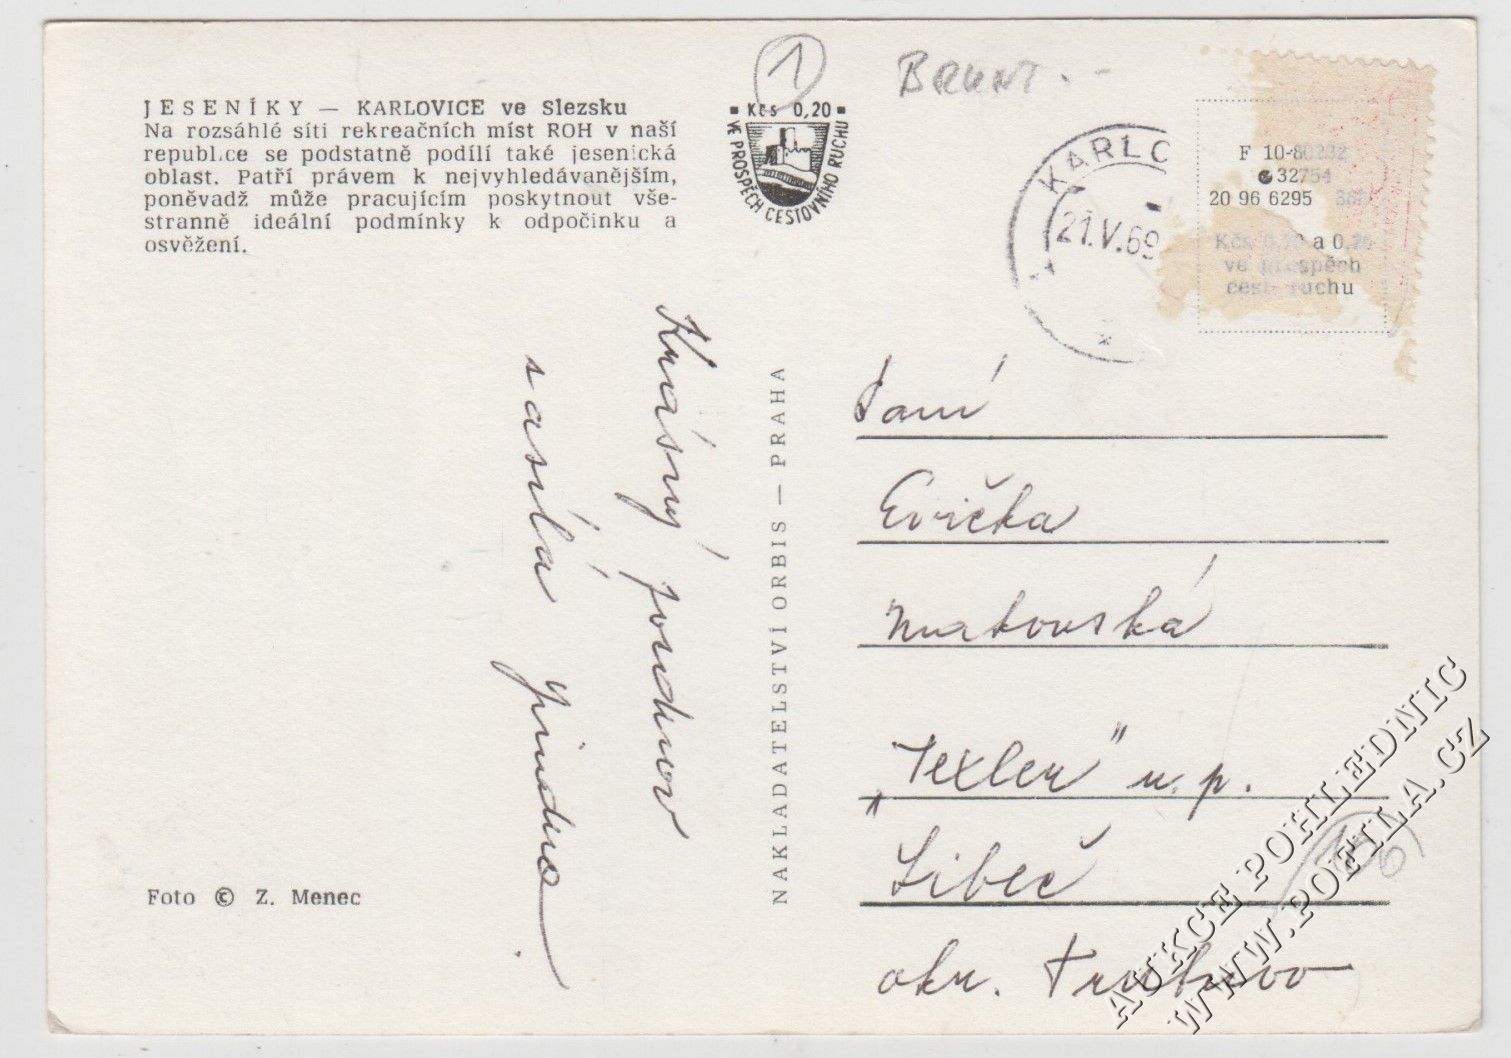 JESENÍKY — KARLOVICE ve Slezsku
Na rozsáhlé síti rekreačních míst ROH v naší
republice se podstatně podílí také jesenická
oblast. Patří právem k nejvyhledávanějším,
poněvadž může pracujícím poskytnout vše-
stranně ideální podmínky k odpočinku a
osvěžení.
1
Kčs 0,20
VE PROSPĚCH CESTOVNÍHO RUCHU
KARLO
21.V.69
F 10-80232
32754
20 96 6295
Kčs 0,70 a 0,20
ve prospěch
cest. ruchu
Krásný pozdrav
zasílá Jindra
NAKLADATELSTVÍ ORBIS — PRAHA
Paní
Evička
Makovská
„Texlen" n. p.
Libeč
okr. Trutnov
Foto © Z. Menec
AUKCE POHLEDNIC
WWW.POFILA.CZ